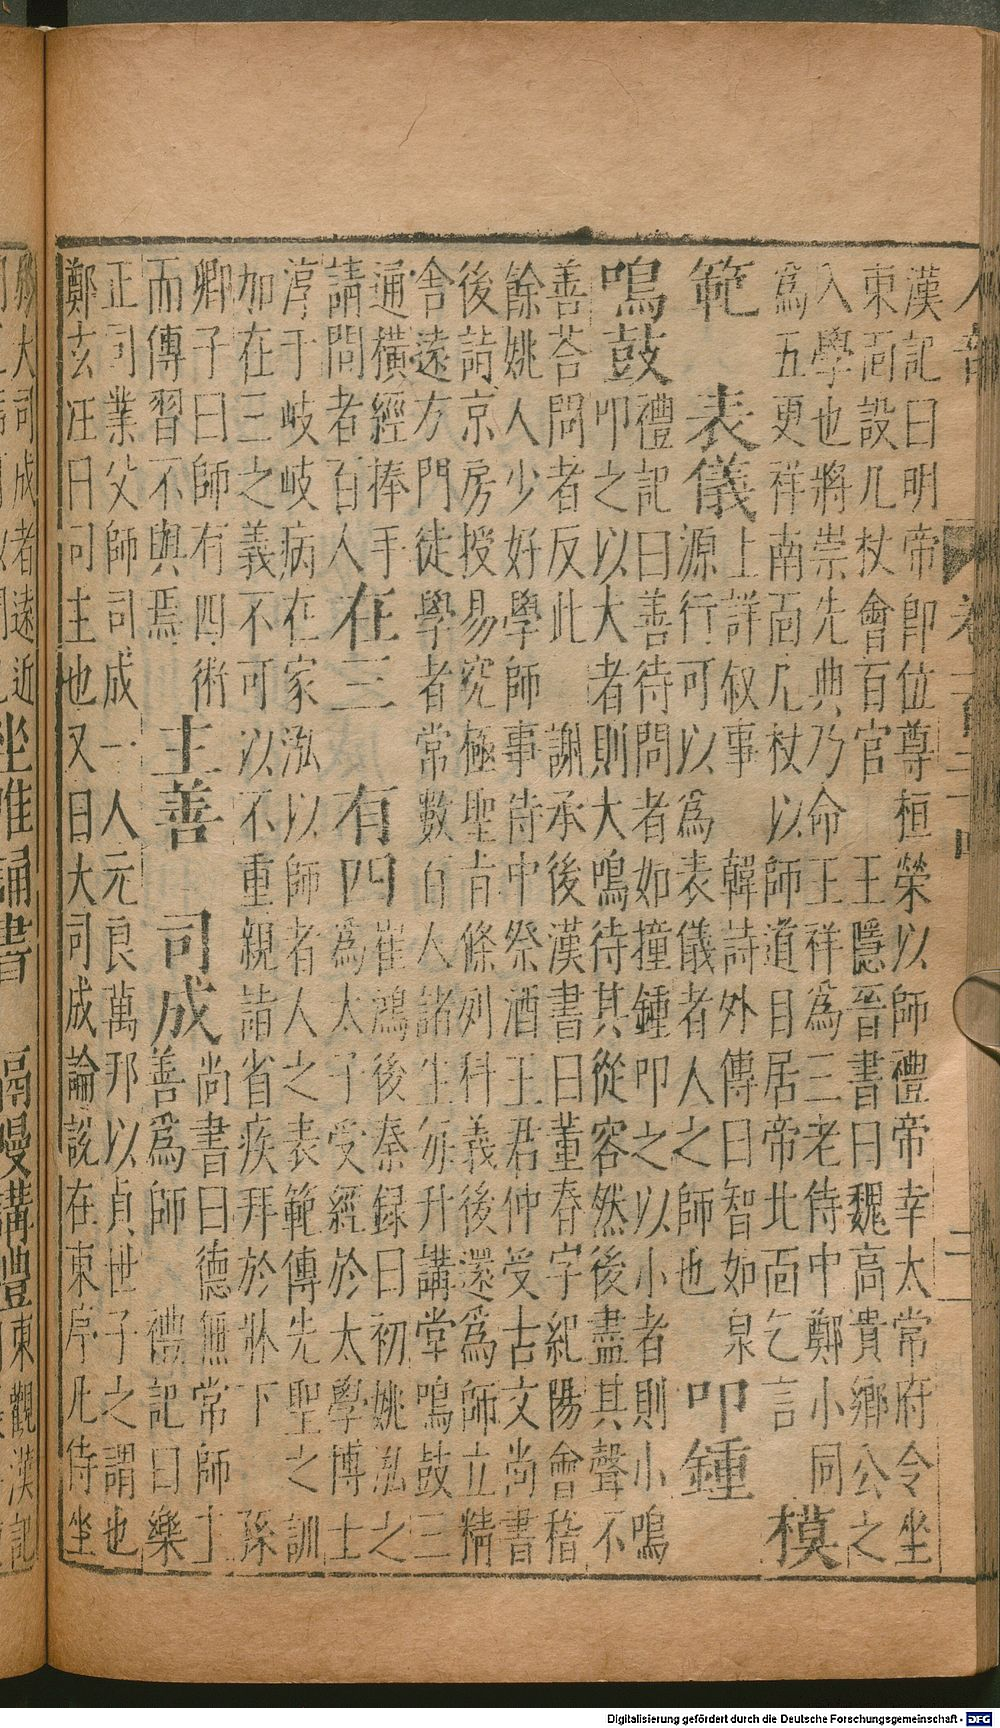 人部
漢記曰明帝即位尊桓榮以師禮帝幸太常府令坐
東面設几杖會百官　王隱晉書曰魏高貴鄉公之
入學也將崇先典乃命王祥為三老侍中鄭小同
為五更祥南面几杖以師道自居帝北面乞言　模
範　表儀　上詳叙事　韓詩外傳曰智如泉
源行可以為表儀者人之師也　叩鍾
鳴鼓　禮記曰善待問者如撞鍾叩之以小者則小鳴
叩之以大者則大鳴待其從容然後盡其聲不
善荅問者反此　謝承後漢書曰董春字紀陽會稽
餘姚人少好學師事侍中祭酒王君仲受古文尚書
後詣京房授易究極聖旨條列科義後還為師立精
舍遠方門徒學者常數百人諸生每升講堂鳴鼓三
通橫經捧手
請問者百人　在三　有四　崔鴻後秦録曰初姚泓之
為太子受經於太學博士
淳于岐岐病在家泓以師者人之表範傳先聖之訓
加在三之義不可以不重親詣省疾拜於牀下　孫
卿子曰師有四術
而傳習不與焉　主善　司成　尚書曰德無常師主
善為師　禮記曰樂
正司業父師司成一人元良萬邦以貞世子之謂也
鄭玄注曰司主也又曰大司成論說在東序凡侍坐
大司成者遠近　坐帷誦書　隔幔講禮　東觀漢記